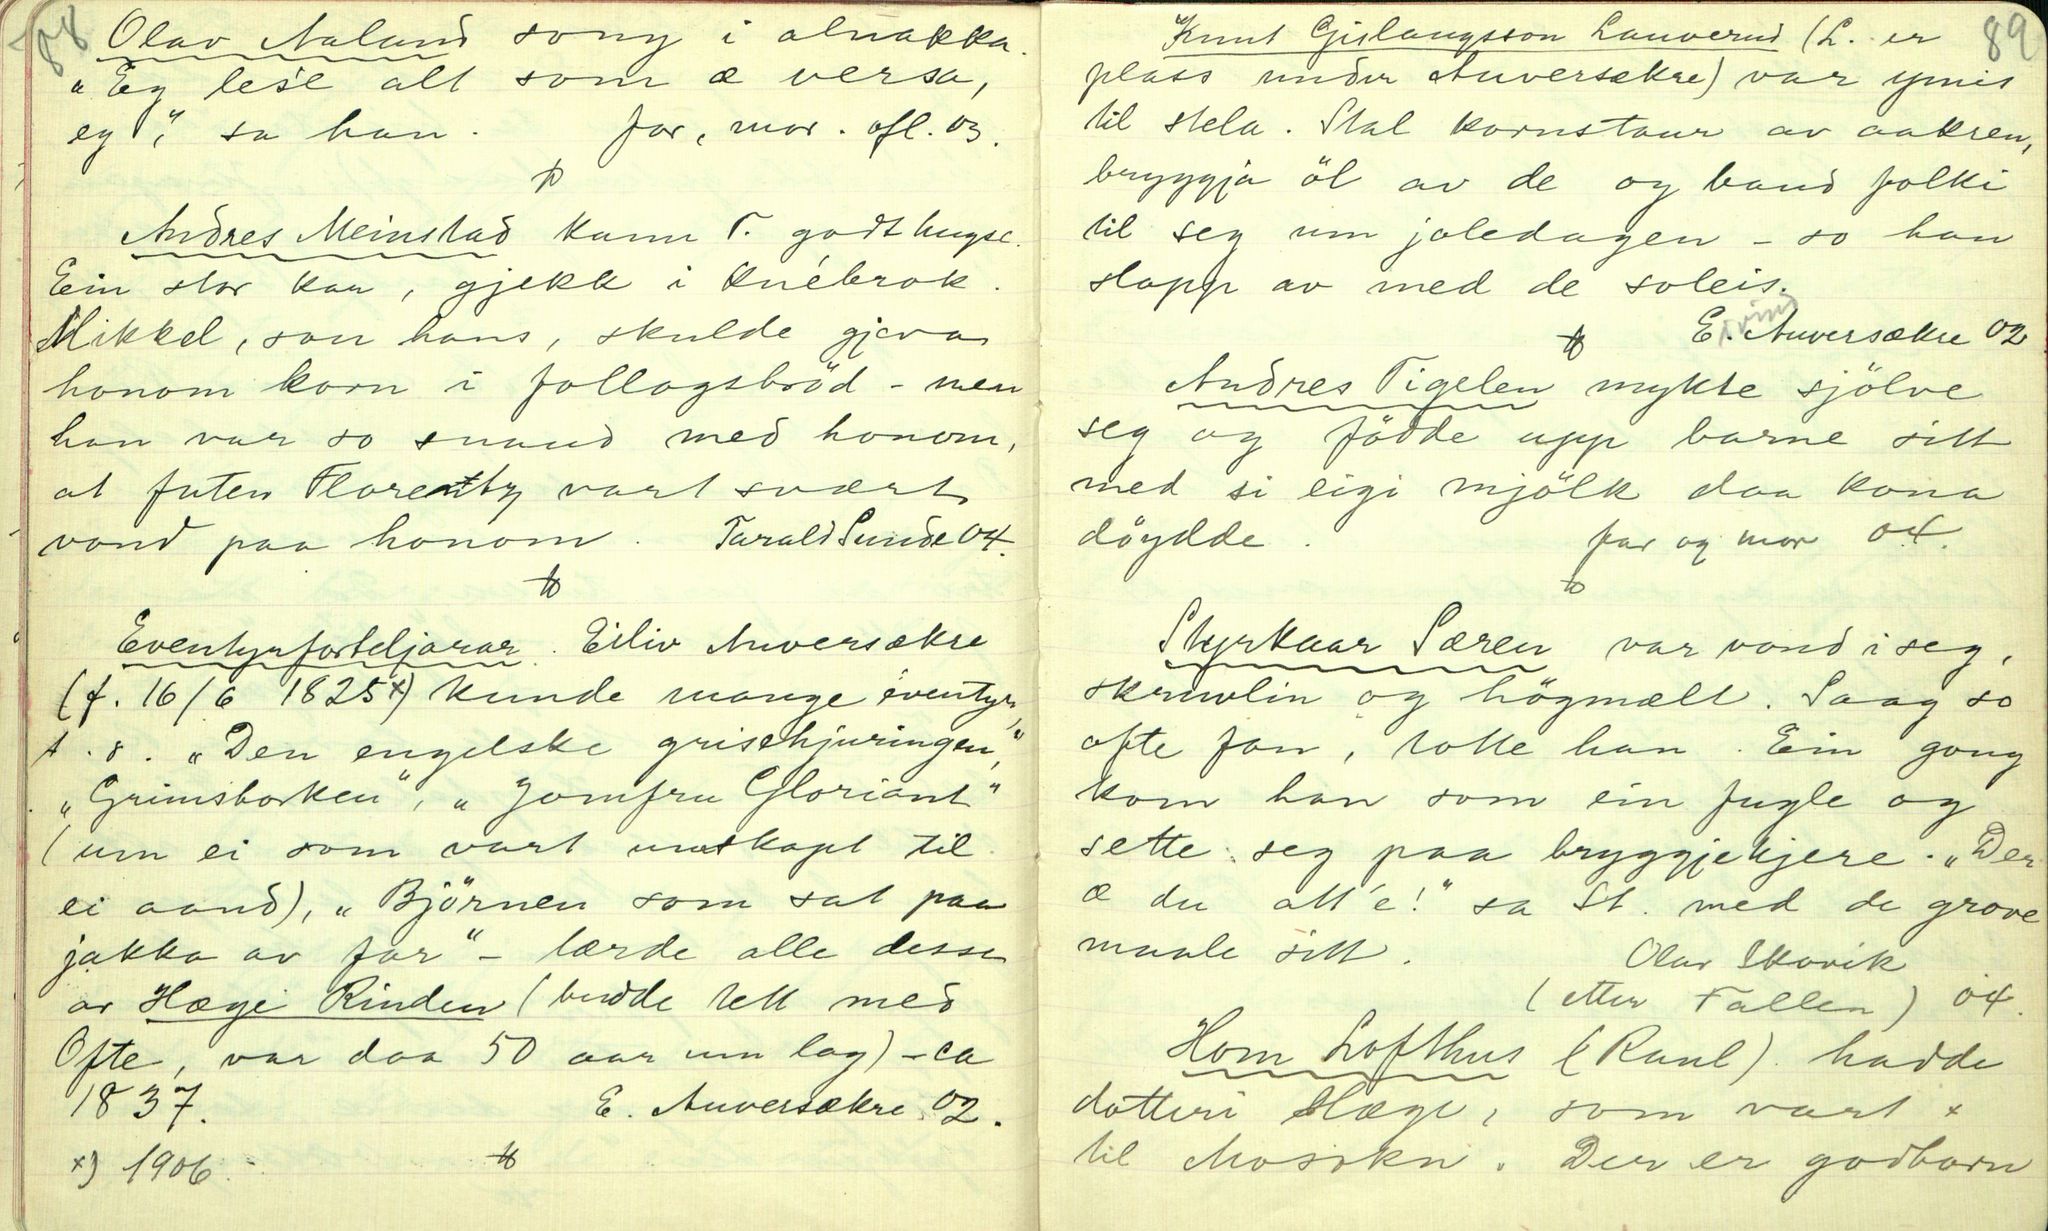 88
Olav Naland song i alnakka.
"Eg les'e alt som æ versa,
eg", sa han. far, mor. ofl. 03.
Andres Meinstad kann T. godt hugse.
Ein stor kar, gjekk i knébrok.
Mikkel, son hans, skulde gjeva
honom korn i follogsbröd - men
han var so snaud med honom,
at futen Florentz vart svært
vond paa honom. Tarald Sunde 04.
Eventyrforteljarar. Eiliv Auversækre
(f. 16/6 1825x) kunde mange eventyr,
t. s. "Den engelske grisehjuringen",
"Grimsborken", "Jomfru Gloriant"
(um ei som vart umskapt til
ei aand), "Björnen som sat paa
jakka av far" - lærde alle desse
av Hæge Rinden (budde tett med
Ofte, var daa 50 aar um lag) - ca
1837. E. Auversækre 02.
x) 1906.
89
Knut Gislaugsson Lauverud (L. er
plass under Auversækre) var ymis
til stela. Stal kornstaur av aakren,
bryggja öl av de og baud folki
til seg um joledagen - so han
slapp av med de soleis.
Eivind Auversækre 02
Andres Tigelen mykte sjölve
seg og födde upp barne sitt
med si eigi mjölk daa kona
döydde. far og mor 04.
Styrkaar Særen var vond i seg,
skruvlin og högmælt. Saag so
ofte fan, totte han. Ein gong
kom han som ein fugle og
sette seg paa bryggjekjere. "Der
æ du att'e!" sa St. med de grove
maale sitt. Olav Skovik
(etter Fallen) 04.
Hom Lofthus (Raul) hadde
dotteri Hæge, som vart x
til Mosokn. Der er godbarn